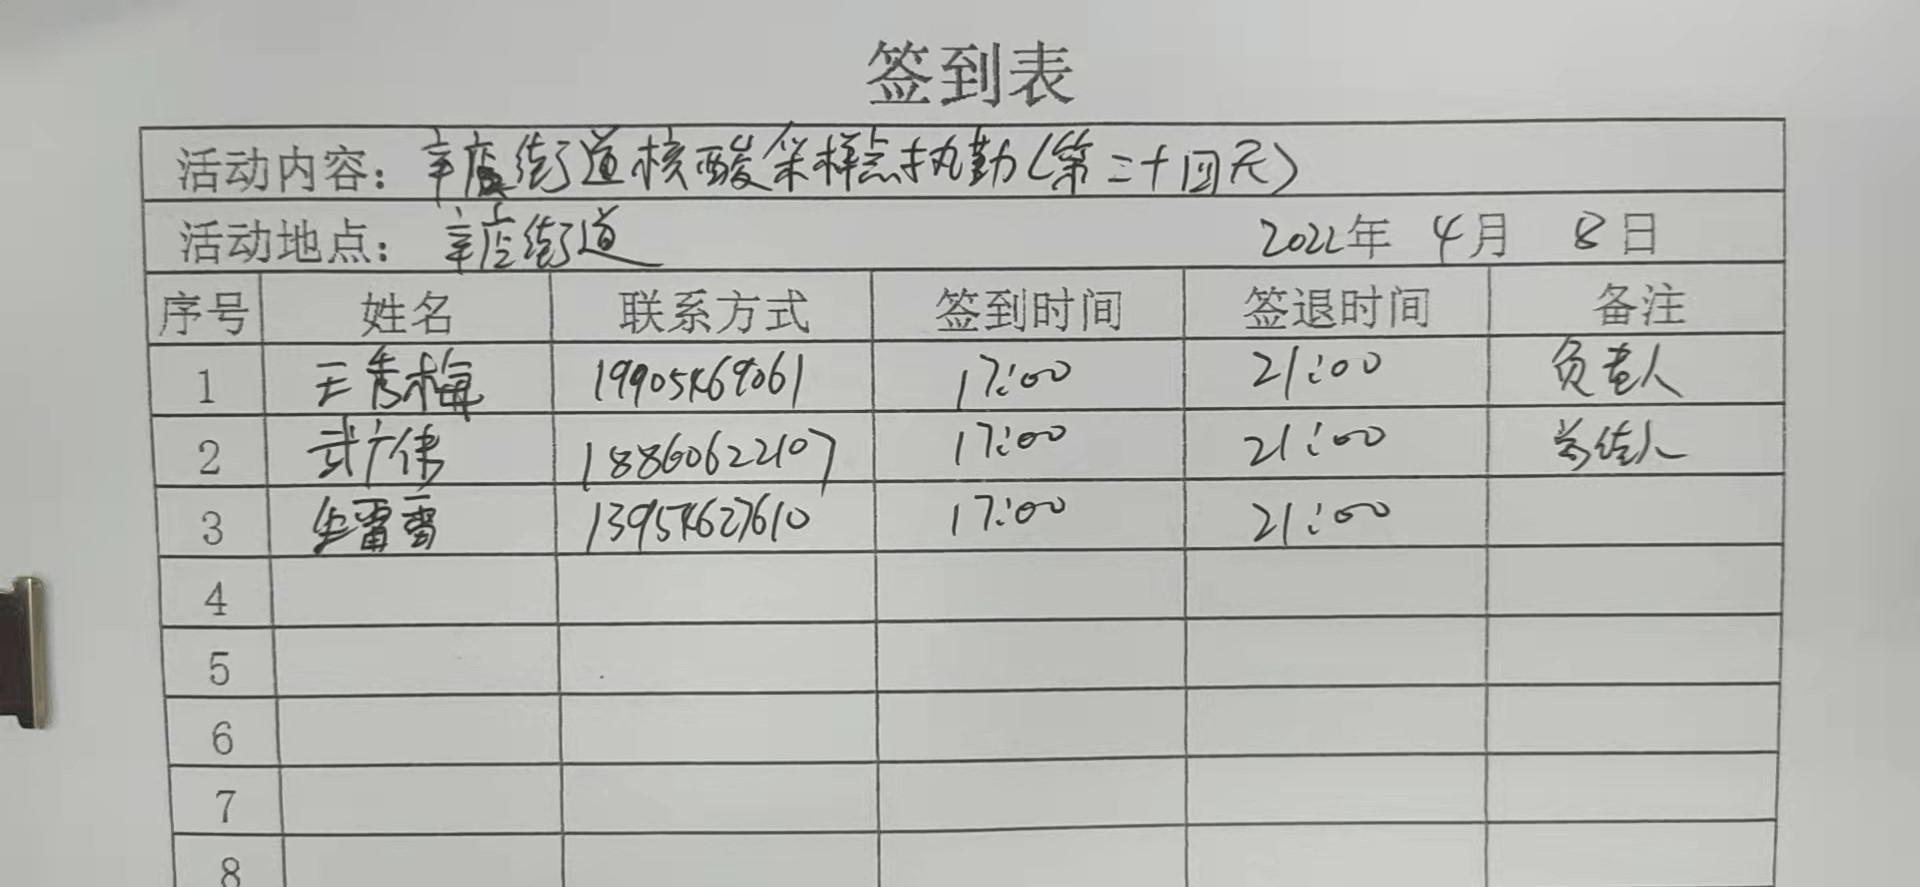 签到表
活动内容：辛店街道核酸采样点执勤（第二十四天）
活动地点：辛店街道 2022年 4月 8日
序号 姓名 联系方式 签到时间 签退时间 备注
1 王秀梅 19905469061 17:00 21:00 负责人
2 武广伟 18860622107 17:00 21:00
3 17:00 21:00
4
5
6
7
8